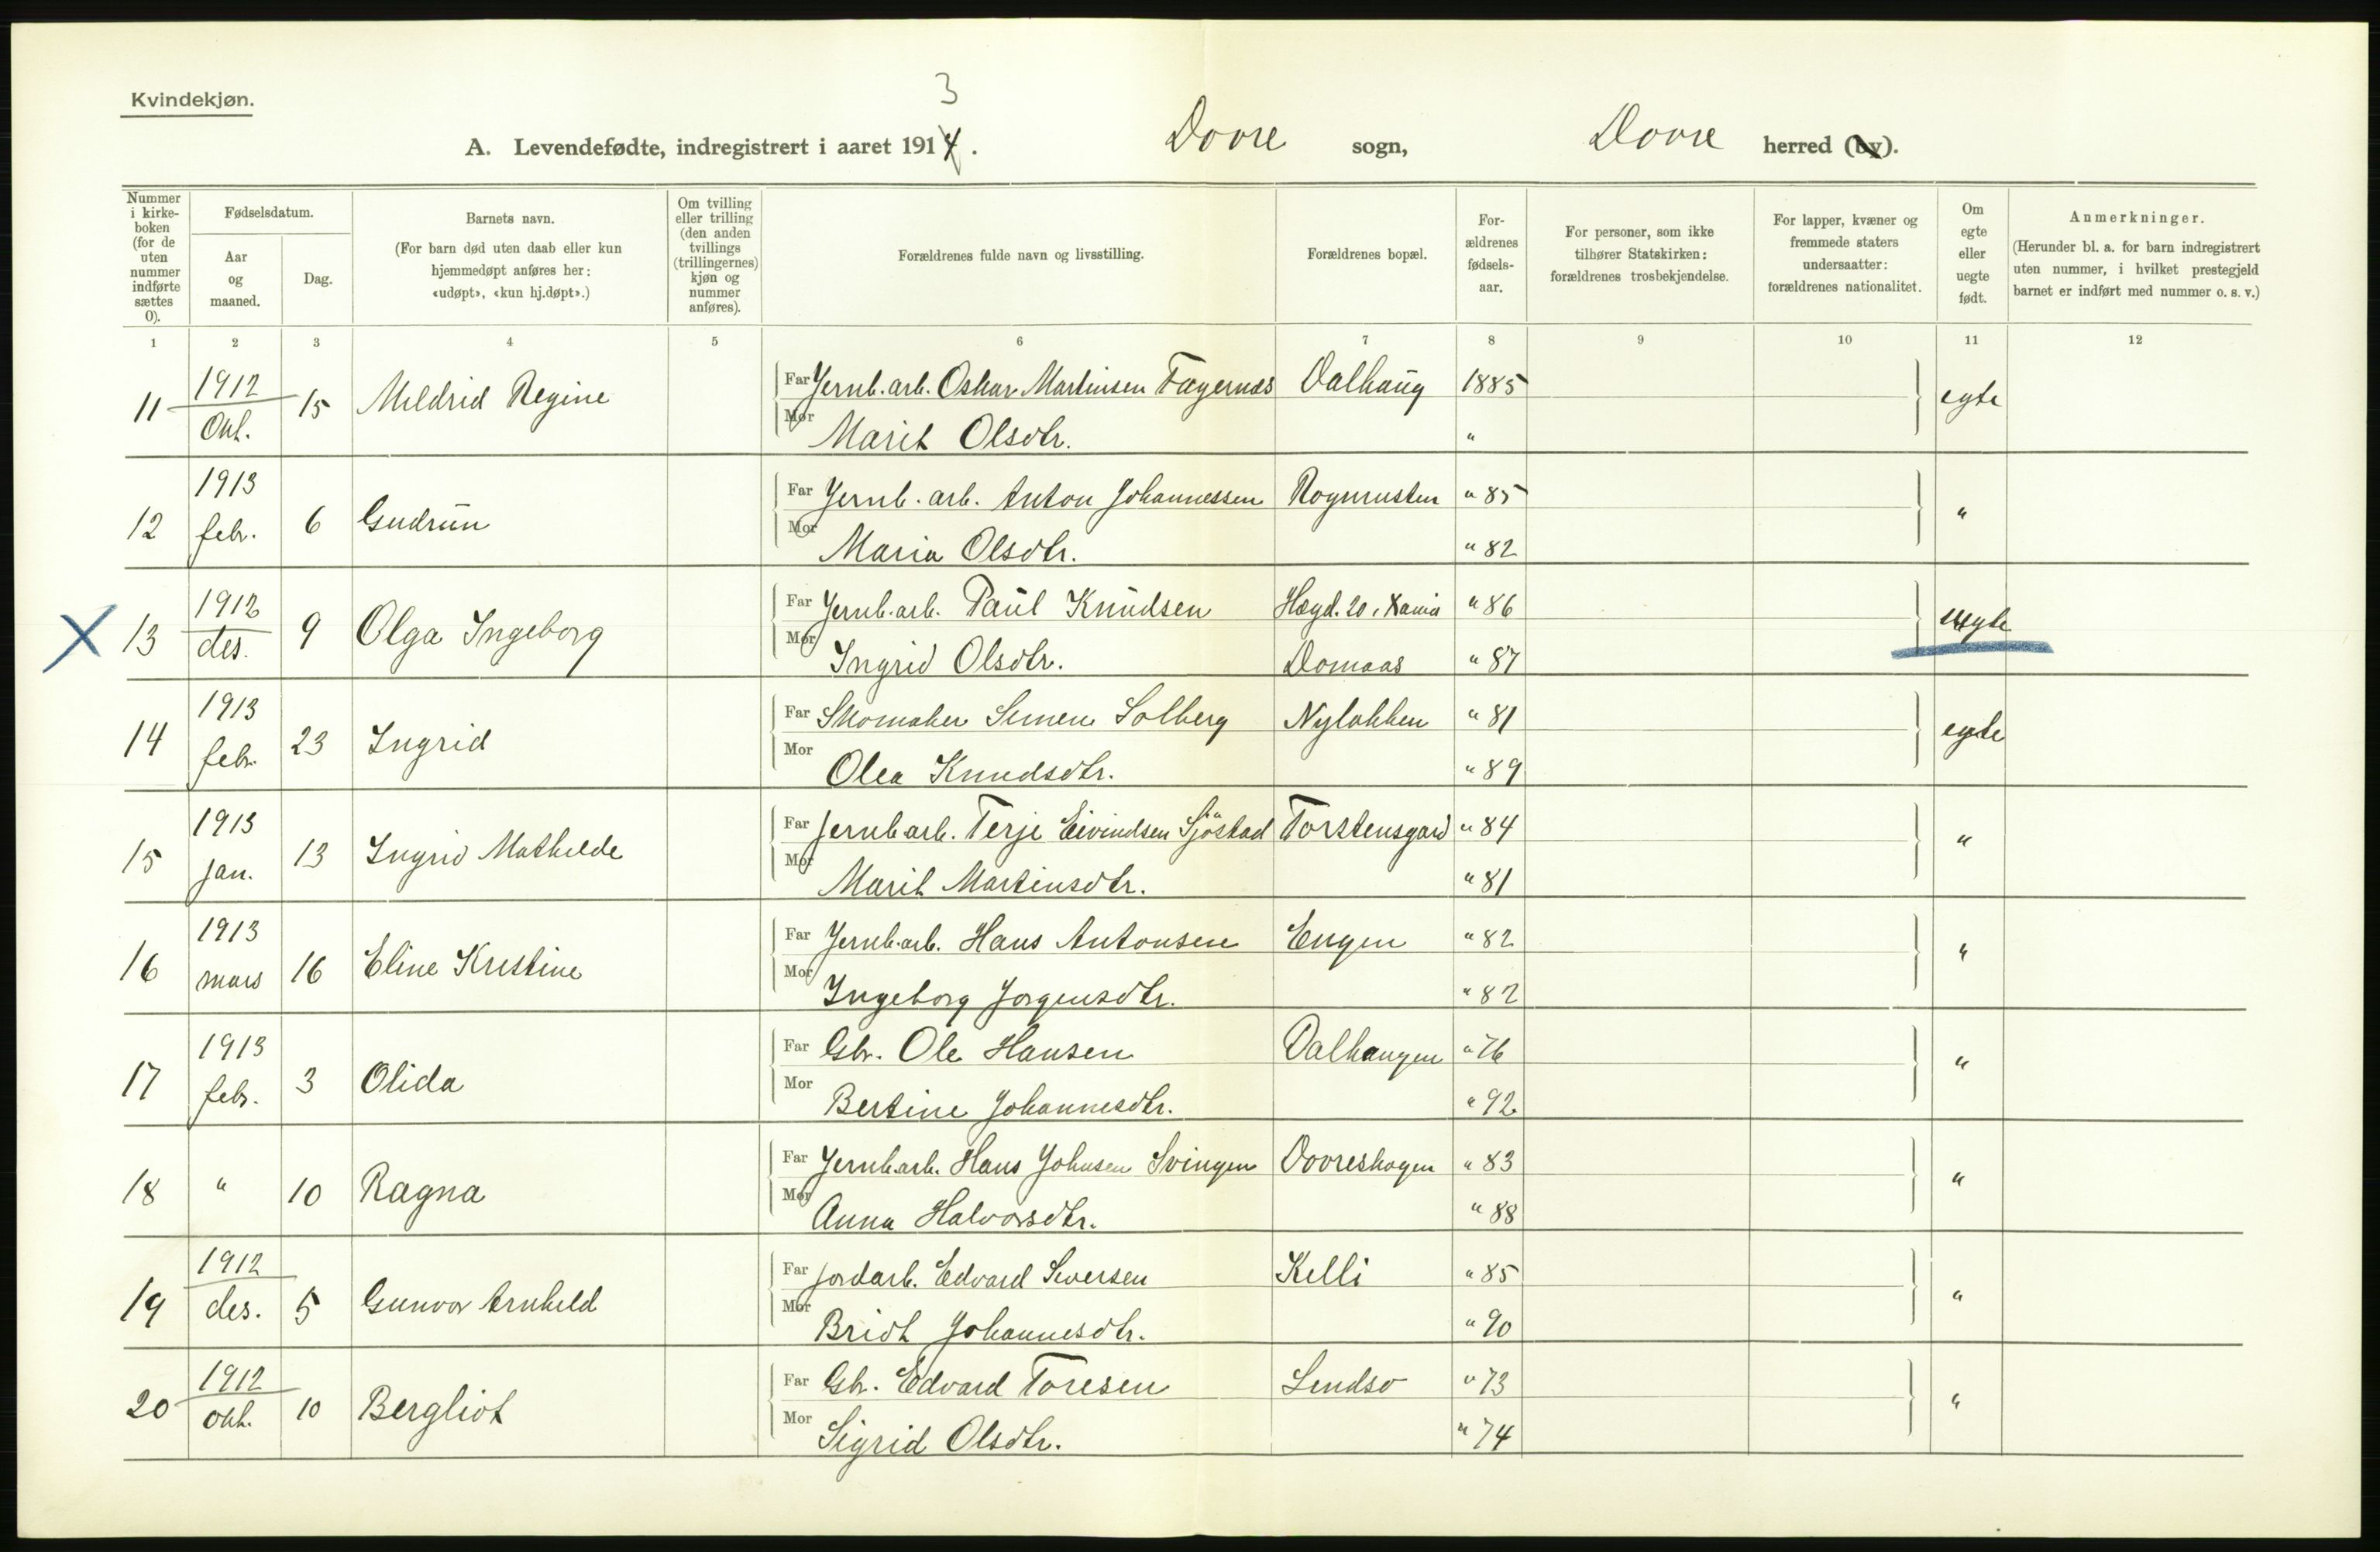 Kvindekjøn.
3
A. Levendefødte, indregistrert i aaret 1914. Dovre sogn, Dovre herred (by).
Nummer i kirkeboken (for de uten nummer indførte sættes 0).
Fødselsdatum.
Aar og maaned.
Dag.
Barnets navn.
(For barn død uten daab eller kun hjemmedøpt anføres her: «udøpt», «kun hj.døpt».)
Om tvilling eller trilling (den anden tvillings (trillingernes) kjøn og nummer anføres).
Forældrenes fulde navn og livsstilling.
Forældrenes bopæl.
For-ældrenes fødsels-aar.
For personer, som ikke tilhører Statskirken: forældrenes trosbekjendelse.
For lapper, kvæner og fremmede staters undersaatter: forældrenes nationalitet.
Om egte eller uegte født.
Anmerkninger.
(Herunder bl. a. for barn indregistrert uten nummer, i hvilket prestegjeld barnet er indført med nummer o. s. v.)
1 2 3 4 5 6 7 8 9 10 11 12
11 1912 Okt. 15 Mildrid Regine Far Jernb. arb. Oskar Martinsen Fagernæs Dalhaug 1885 egte
Mor Marit Olsdtr. "
12 1913 febr. 6 Gudrun Far Jernb. arb. Anton Johannessen Rognrusten " 85 "
Mor Maria Olsdtr. " 82
X 13 1912 des. 9 Olga Ingeborg Far Jernb. arb. Paul Knudsen Hægd. 20, Kania " 86 uegte
Mor Ingrid Olsdtr. Domaas " 87
14 1913 febr. 23 Ingrid Far Skomaker Simen Solberg Nyløkken " 81 egte
Mor Olea Knudsdtr. " 89
15 1913 jan. 13 Ingrid Mathilde Far Jernb arb. Terje Eivindsen Sjöstad Torstensgard " 84 "
Mor Marit Martinsdtr. " 81
16 1913 mars 16 Eline Kristine Far Jernb. arb. Hans Antonsen Engen " 82 "
Mor Ingeborg Jorgensdtr. " 82
17 1913 febr. 3 Olida Far Gbr. Ole Hansen Dalhaugen " 76 "
Mor Bertine Johannesdtr. " 92
18 " 10 Ragna Far Jernb arb. Hans Johnsen Svingen Dovreskogen " 83 "
Mor Anna Halvorsdtr. " 88
19 1912 des. 5 Gunvor Arnhild Far Jordarb. Edvard Siversen Kelli " 85 "
Mor Bridt Johannesdtr. " 90
20 1912 okt. 10 Bergliot Far Gbr. Edvard Toresen Lindsø " 73 "
Mor Sigrid Olsdtr. " 74